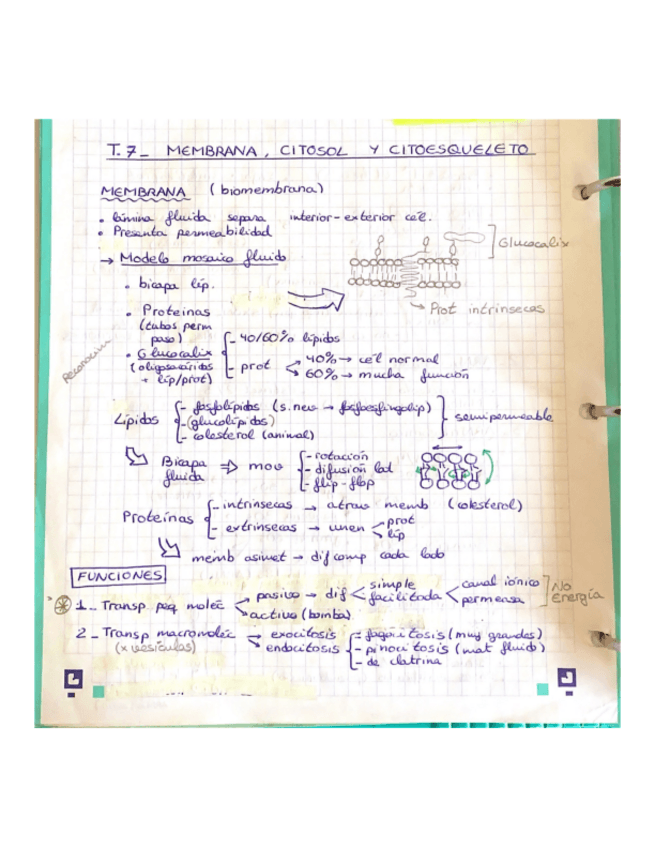 T.7_ MEMBRANA, CITOSOL Y CITOESQUELETO
MEMBRANA (biomembrana)
• lámina fluida separa interior-exterior cél.
• Presenta permeabilidad
→ Modelo mosaico fluido
Glucocalix
• bicapa líp.
→ Prot intrínsecas
• Proteínas
(tubos perm
paso)
- 40/60% lípidos
• Glucocalix
(oligosacáridos
+ líp/prot)
- prot
40% → cél normal
60% → mucha función
Lípidos
- fosfolípidos (s.neu → fosfoesfingolip)
- (glucolípidos)
- colesterol (animal)
semipermeable
Bicapa
fluida
⇒ mov
- rotación
- difusión lat
- flip-flop
Proteínas
- intrínsecas → atrav memb (colesterol)
- extrínsecas → unen
prot
líp
memb asimet → dif comp cada lado
FUNCIONES
1_ Transp peq moléc
pasivo → dif
simple
facilitada
canal iónico
permeasa
No
Energía
activo (bomba)
2_ Transp macromoléc
(x vesículas)
→ exocitosis
endocitosis
- fagocitosis (muy grandes)
- pinocitosis (mat fluido)
- de clatrina